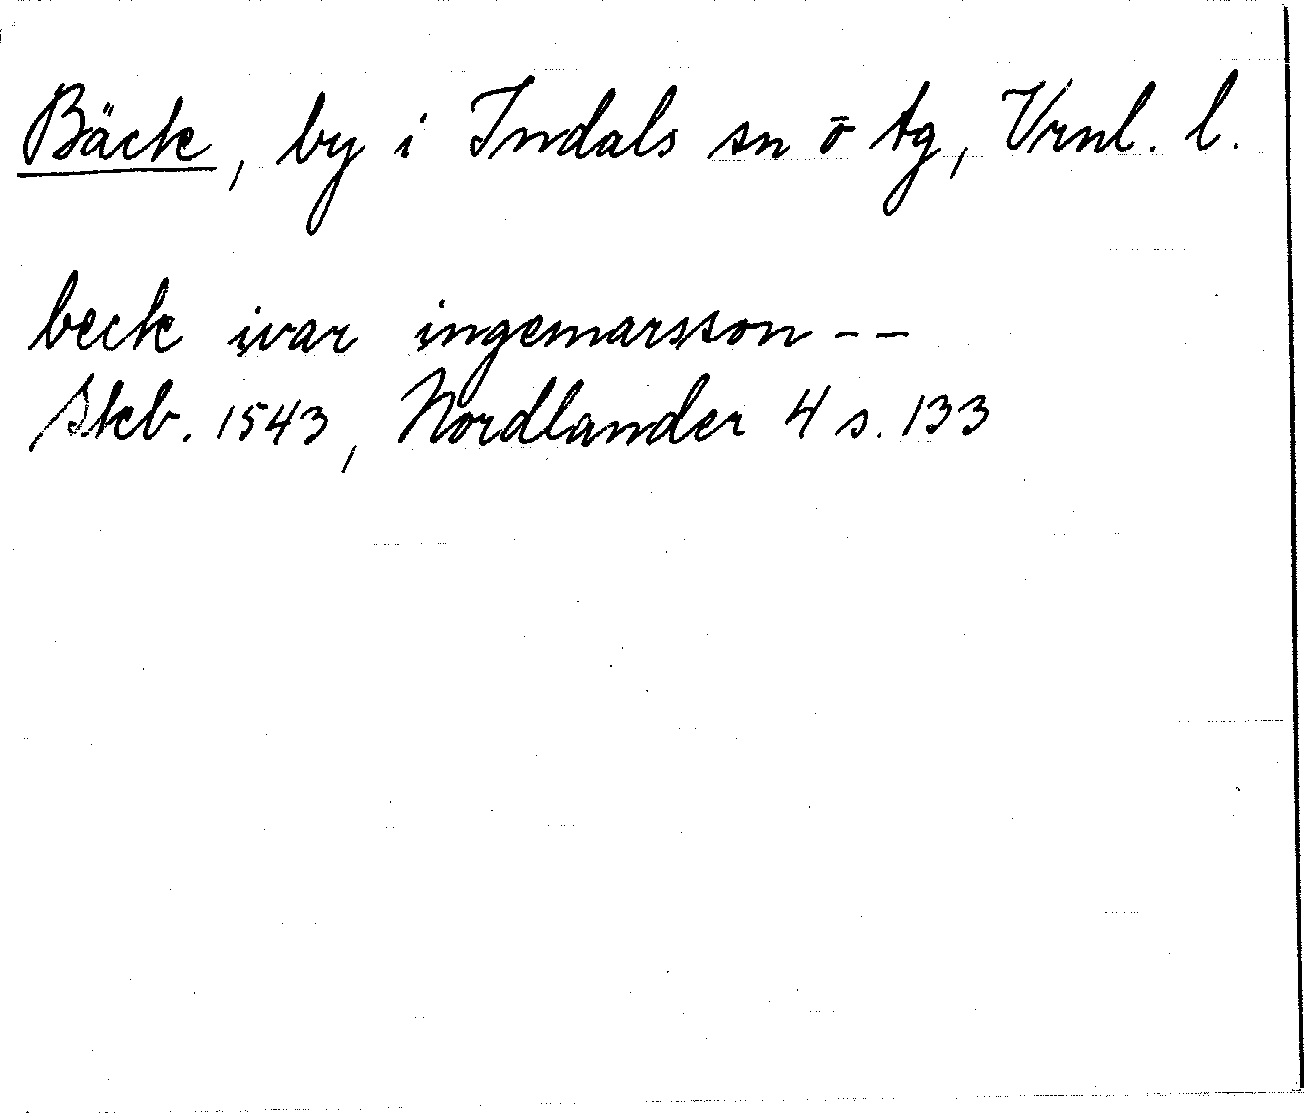 Bäck, by i Indals sn ō tg, Vrnl. l.
beck ivar ingemarsson – –
Skb. 1543, Nordlander 4 s. 133